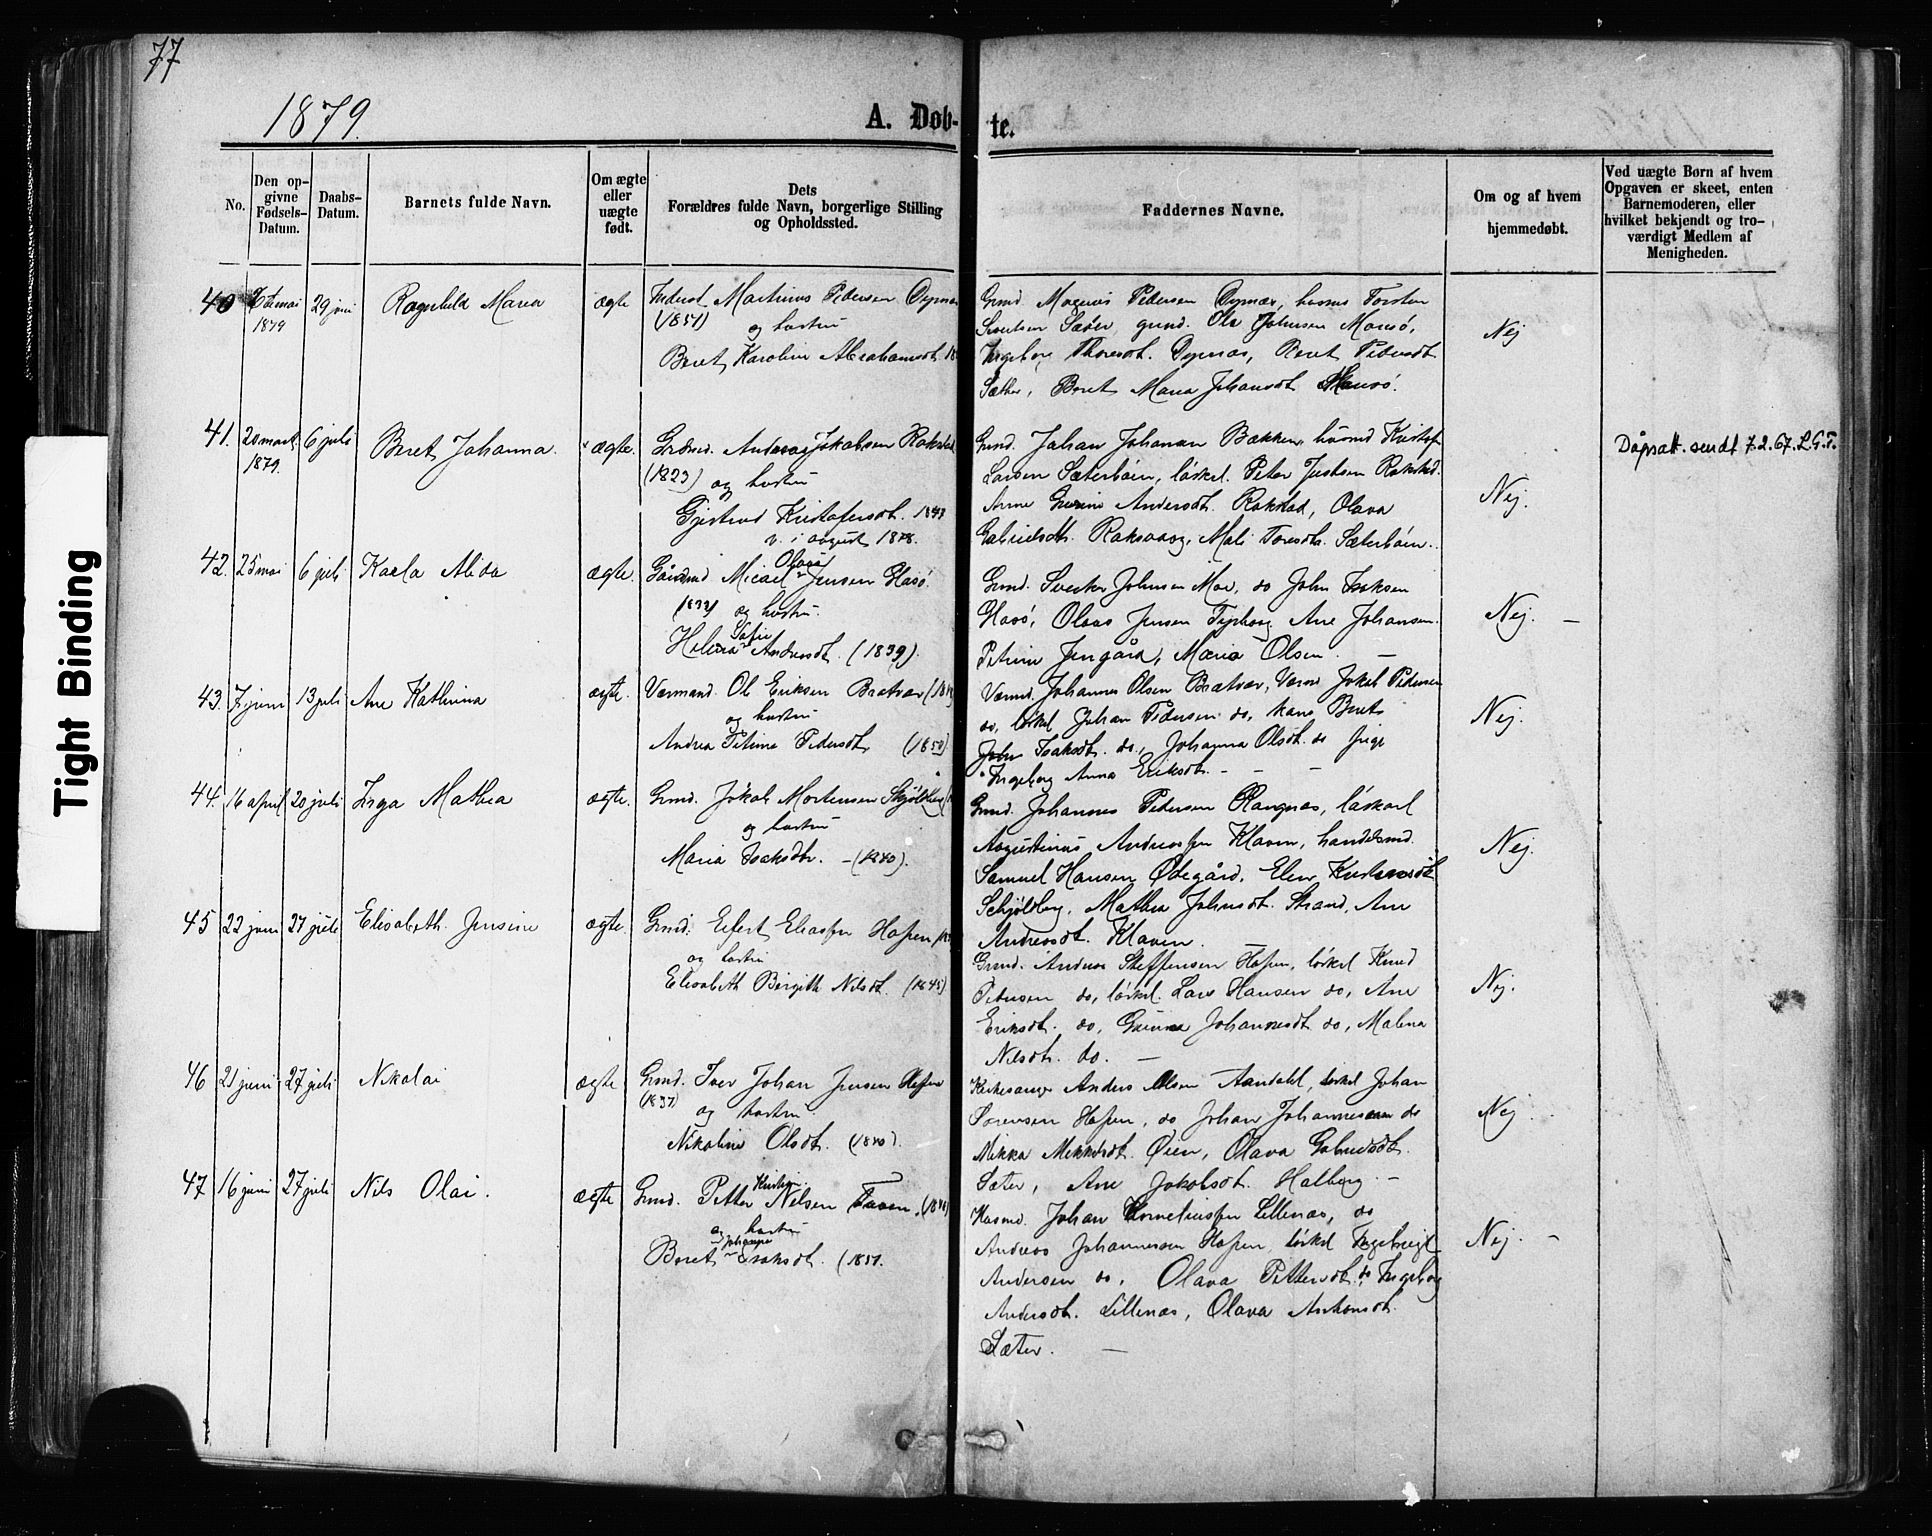 77
1879
A. Døb-
te.
No.
Den op-
givne
Fødsels-
Datum.
Daabs-
Datum.
Barnets fulde Navn.
Om ægte
eller
uægte
født.
Dets
Forældres fulde Navn, borgerlige Stilling
og Opholdssted.
Faddernes Navne.
Om og af hvem
hjemmedøbt.
Ved uægte Børn af hvem
Opgaven er skeet, enten
Barnemoderen, eller
hvilket bekjendt og tro-
værdigt Medlem af
Menigheden.
40 mai 1879 29 juni Ragnhild Maria ægte
Inderst Martinus Pedersen Dyrnæs
(1851)
og hustru
Beret Karoline Abrahamsdt.
Grmd. Magnus Pedersen Dyrnæs, husms Torsten
Sivertsen Sæter, grmd. Ole Johnsen Mausø,
Ingeborg Thoresdt. Dyrnæs, Beret Pedersdt
Sæther, Beret Maria Johansdt Mausø.
Nej
41. 20 marts 1879. 6 juli Beret Johanna. ægte.
Grdmd. Andreas Jakobsen Rakstad
(1823) og hustru
Gjertrud Kristofersdt.
v. i august 1878.
Grmd. Johan Johansen Bakken, husmd Kristofr
Larsen Sæterbøen, løskrl. Peter Justsen Rakstad.
Anne Andersdt. Rakstad, Olava
Gabrielsdt. Raksvaag, Mali Toresdt. Sæterbøen.
Nej.
Dåpsatt. sendt 7.2.67. L.G.T.
42. 25 mai 6 juli Karla Alida ægte.
Gårdmd Micael Olaus Jensen Hasø.
og hustru
Helena Sofie Andersdt. (1839).
Grmd. Sverker Johnsen Moe, do John Isaksen
Hasø, Olaus Jensen Ane Johansen.
Petrine Jengård, Maria Olsen. —
Nej. —
43. 7 juni 13 juli Ane Kathrina ægte.
Varmand. Ole Eriksen Bratvær
og hustru
Andrea Petrine Pedersdt. (1850)
Varmd. Johannes Olsen Bratvær, Varmd Jokob Pedersen
do, løskrl Johan Pedersen do, kone Beret
Isaksdt. do, Johanna Olsdt. do Inge
Ingeborg Anna Eriksdt. — — —
Nej.
44. 16 april 20 juli Inga Mathea ægte.
Grmd. Jokob Mortensen Skjøldberg
og hustru
Maria Isaksdtr. – (1840).
Grmd. Johannes Pedersen Rangnæs, løskarl
Augustinus Andreassen Klaven, handelsmd.
Samuel Hansen Ødegård, Elen Kristensdt
Schjøldbrg, Mathea Johnsdt. Strand, Ane
Andreasdt. Klaven.
Nej.
45 22 juni 27 juli Elisabeth Jensine ægte.
Grmd. Efert Eliassen Hopen
og hustru
Elisabeth Birgith Nilsdt. (1845)
Grmd. Andreas Steffensen Hopen, løskrl Knud
Petersen do, løskrl. Lars Hansen do, Ane
Eriksdt. do, Johannesdt do, Malena
Nilsdt. do. —
Nej.
46 21 juni 27 juli Nikolai ægte
Grmd. Iver Johan Jensen Hopen
(1837)
og hustru
Nikoline Olsdt. (1840).
Kirkesanger Anders Olsen Aandahl, løskrl Johan
Sørensen Hopen, do Johan Johannessen do
Mikka Mikkelsdt. Øien, Olava Gabrielsdt.
Sæter, Ane Jakobsdt. Halberg. —
Nej
47 16 juni 27 juli Nils Olai. ægte
Grmd. Petter Kristian Nilsen
og hustru
Beret Johanna Isaksdt. (1851.
Husmd. Johan Korneliussen Lillenæs, do
Andreas Johannessen Hopen, løskrl Ingebrigt
Andersen do, Olava Pettersdt. do, Ingeborg
Andersdt. Lillenæs, Olava Antonsdt.
Sæter. —
Nej. —
Tight Binding